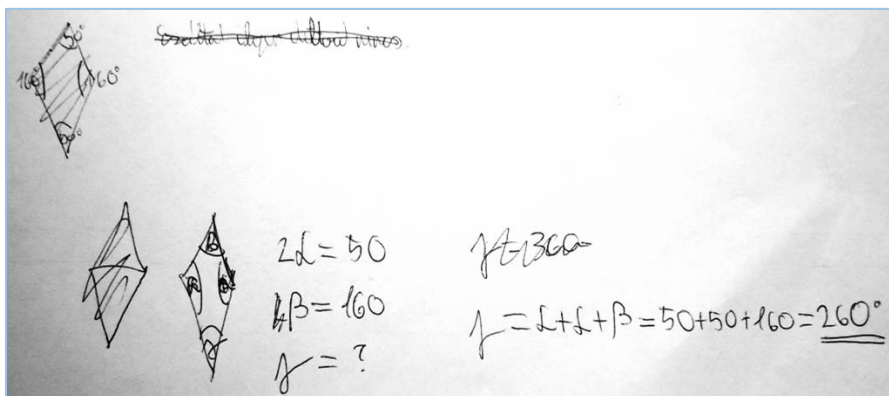 50°
160° 160°
50°
2α = 50
β = 160
γ = ?
γ = α + α + β = 50 + 50 + 160 = 260°